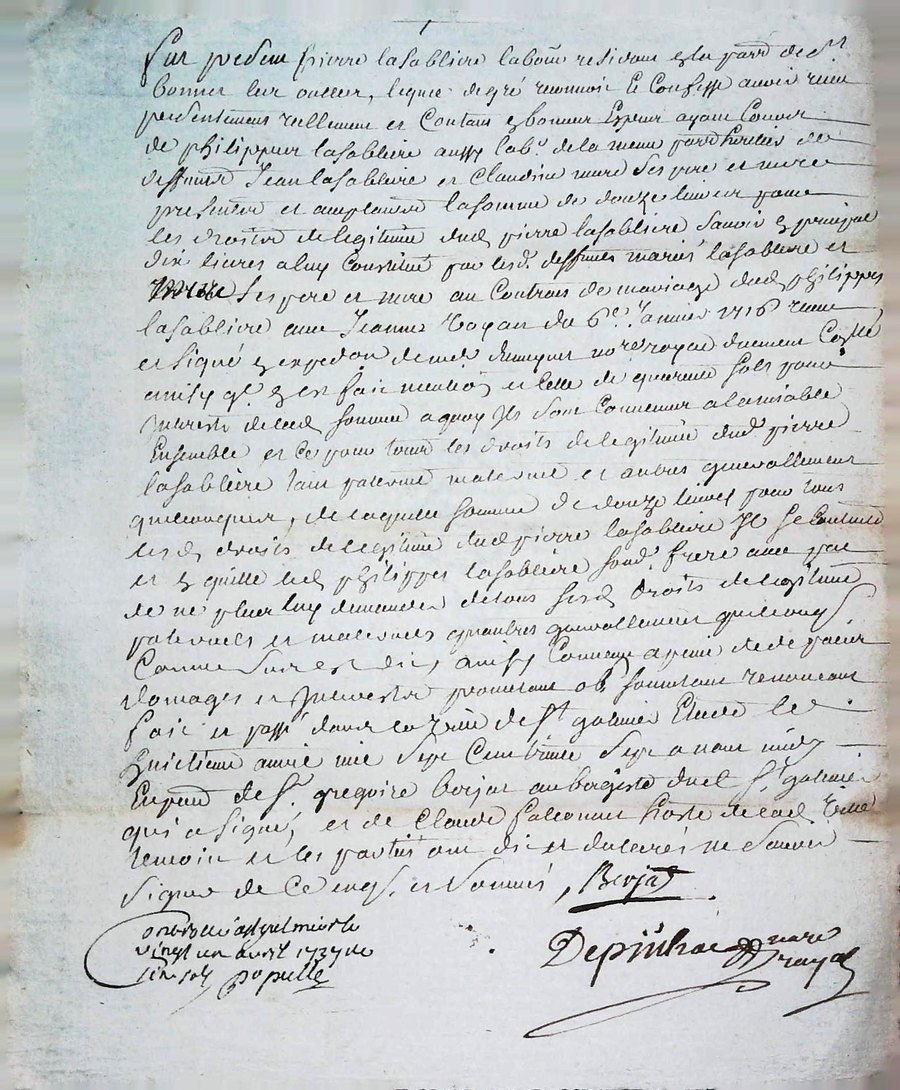 Fut present pierre lasabliere labour residant en la parr de St
bonnet les oulles, lequel de gré reconnoit et Confesse avoir receu
presentement reellement et Contant en bonnes Espece ayant Cours
de philippes lasabliere aussy lab.r de la meme parr heritier de
deffunct Jean lasabliere et Claudine more ses pere et mere
presentte et acceptante la somme de douze livres pour
les droits de legitime dud pierre lasabliere Savoir en principal
dix livres a luy Constitué par lesd. deffuncts mariés lasabliere et
more ses pere et mere au Contrat de mariage dud philippes
lasabliere avec Jeanne du 6e Janvier 1716 receu
et signé en expedon de me nore royal duement Collé
ainsy q.l en est fait mention et celle de quarente sols pour
Interests de lad somme a quoy Ils sont Convenus a lamiable
Ensemble et ce pour tous les droits de legitime dud pierre
lasabliere tant paternel maternel et autres generallement
quelconques, de laquelle somme de douze livres pour tous
lesd droits de legitime dud pierre lasabliere Il se Contente
et en quitte led philippes lasabliere sond. frere avec pac
de ne plus luy demander de tous sesd droits de legitime
paternels et maternels qu autres generallement quelconq
Comme dit est dit, ainsy Convenu a peine de de
domages et Interests promettant ob.  soumettant renoncant
fait et passé dans la ville de St galmier Etude le
huictieme avril mil sept Cent trente sept avant midy
En prnce de Sr. gregoire berjat aubergiste dud St galmier
qui a signé, et de Claude falconnet hoste de lad ville
temoin et les parties ont dit et declarés ne Savoir
signer de Ce enqs. et Sommés, Berjat
Depinhac nore
royal
controllé a St galmier le
vingt un avril 1737 Re
six sols populle